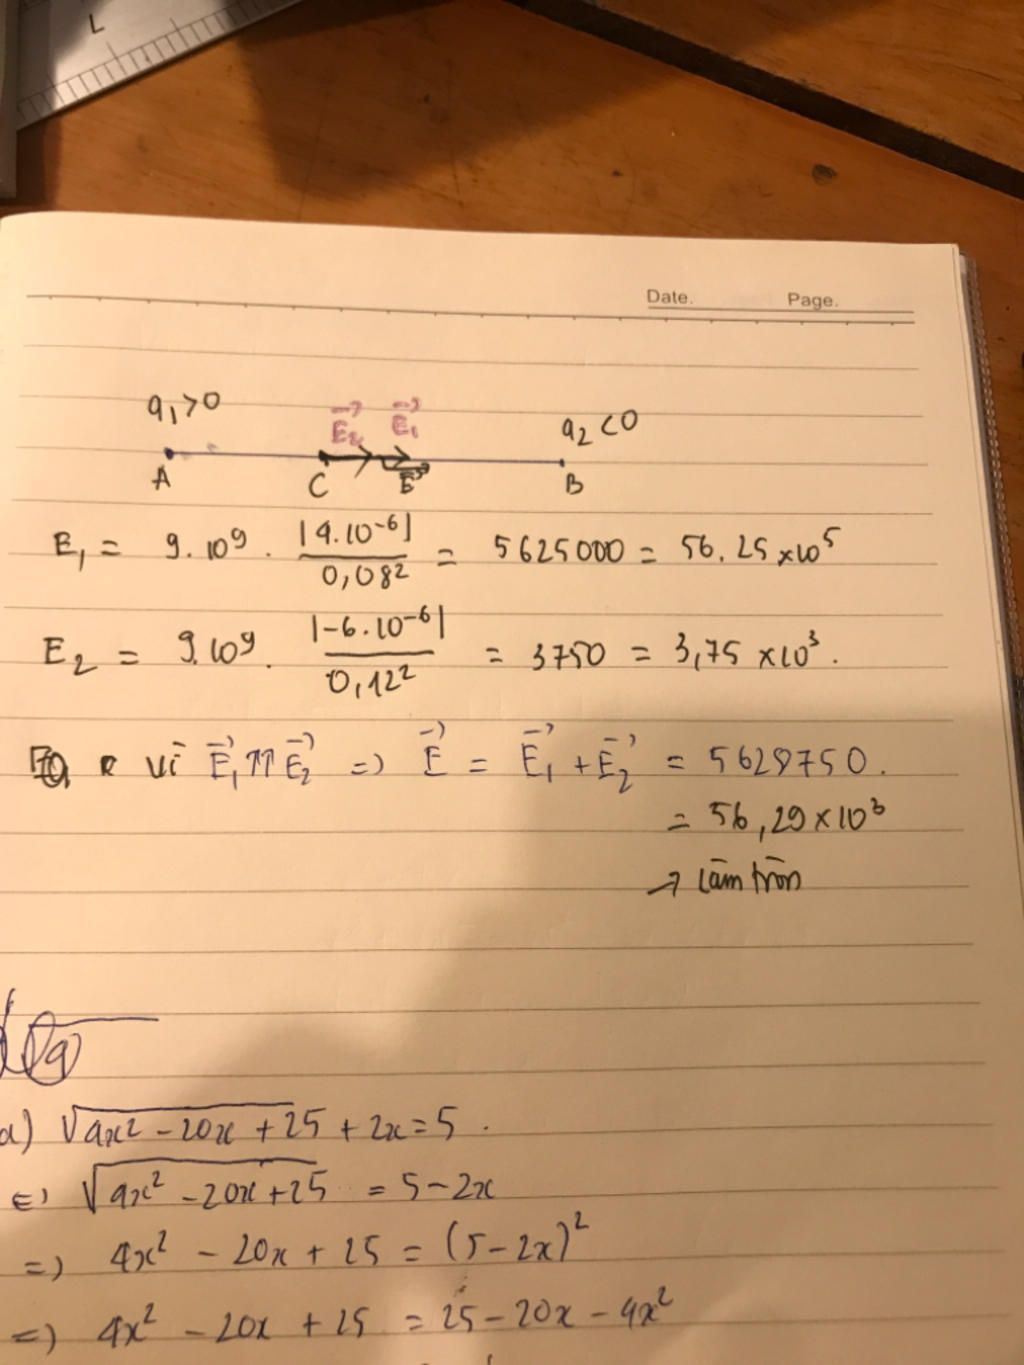 L
Date. Page.
q₁>0
E₂⃗ E₁⃗
q₂<0
A C E⃗ B
E₁ = 9.10⁹ . |4.10⁻⁶| / 0,08² = 5625000 = 56.25 ×10⁵
E₂ = 9.10⁹ . |-6.10⁻⁶| / 0,12² = 3750 = 3,75 ×10³.
vì E₁⃗ ↑↑ E₂⃗ => E⃗ = E₁⃗ + E₂⃗ = 5628750.
= 56,29 × 10³
→ làm tròn
a) √(4x² - 20x + 25) + 2x = 5.
<=> √(4x² - 20x + 25) = 5 - 2x
=> 4x² - 20x + 25 = (5 - 2x)²
=> 4x² - 20x + 25 = 25 - 20x - 4x²